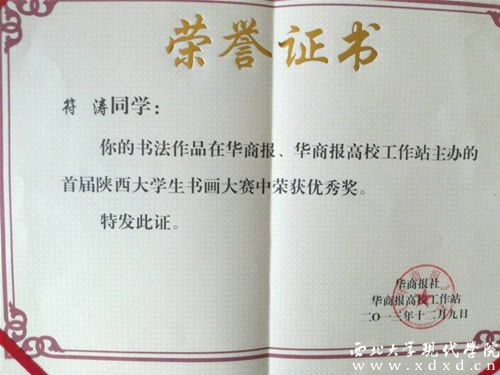 荣誉证书
符涛同学：
你的书法作品在华商报、华商报高校工作站主办的
首届陕西大学生书画大赛中荣获优秀奖。
特发此证。
华商报社
华商报高校工作站
二〇一三年十二月九日
西北大学现代学院
www.xdxd.cn